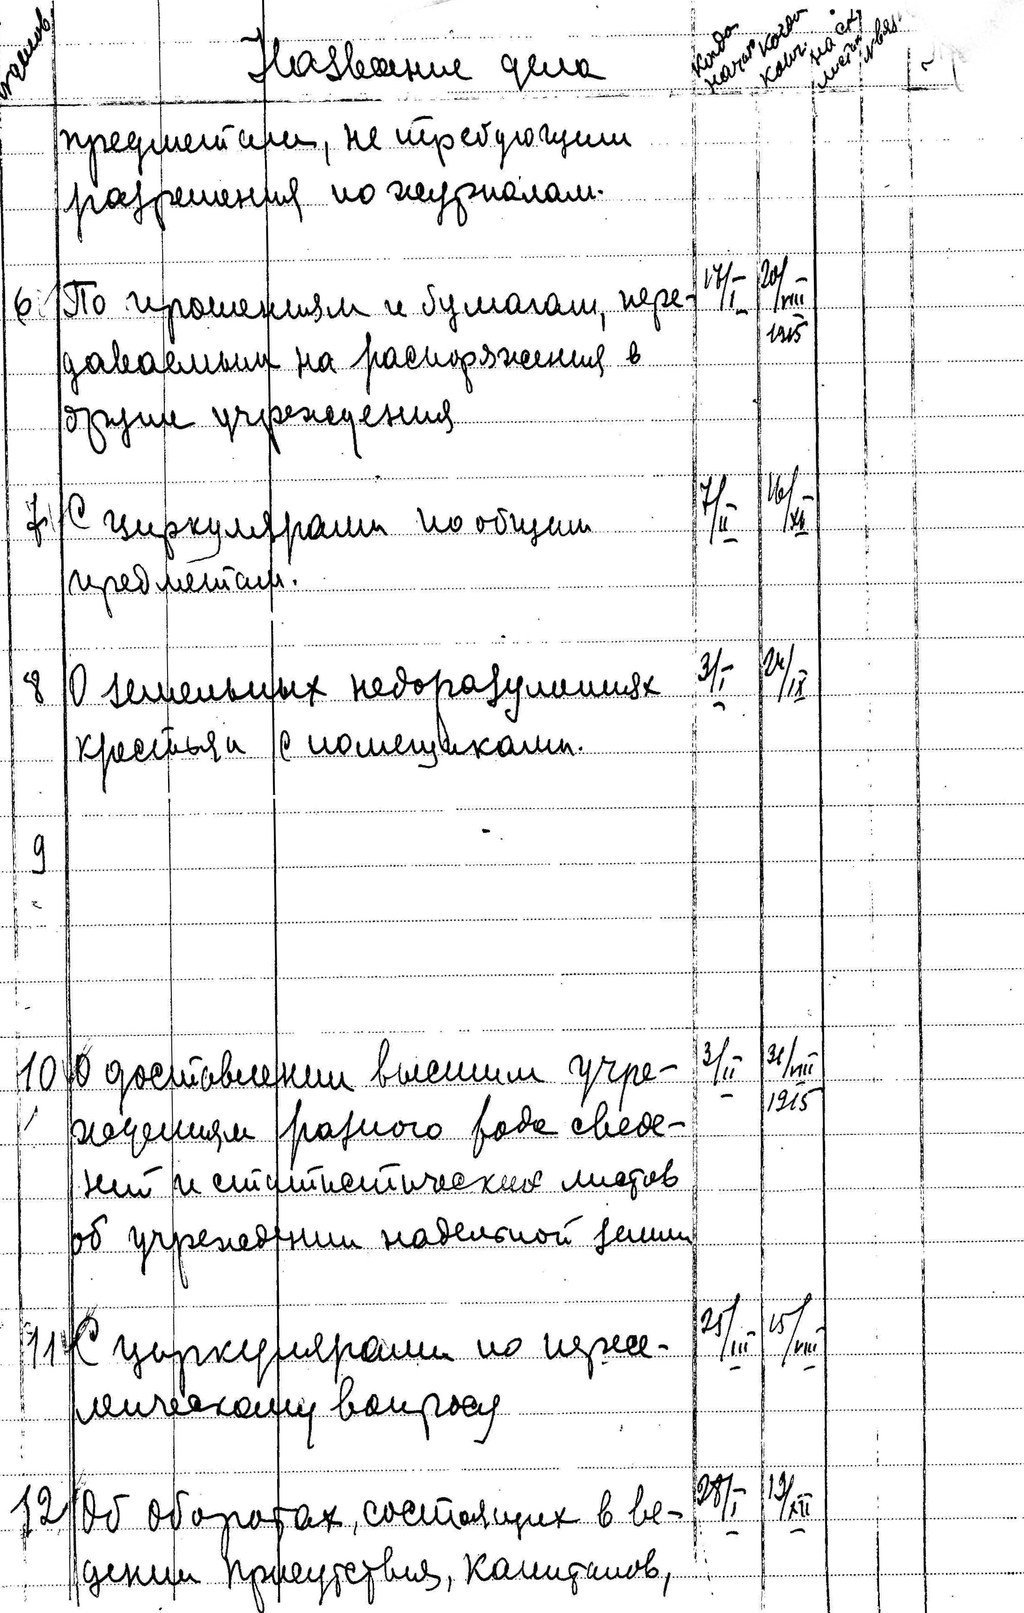 Название дела
когда начат
когда конч.
на ск. листах
предметам, не требующим
разрешения по журналам.
6 По прошениям и бумагам, пере- 17/I 20/VIII
даваемым на распоряжения в 1915
другие учреждения
7 С циркулярами по общим 7/II 16/XII
предметам.
8 О земельных недоразумениях 3/I 24/IX
крестьян с помещиками.
9
10 О доставлении высшим учре- 3/II 31/VIII
ждениям разного рода сведе- 1915
ний и статистических листов
об учреждении надельной земли
11 С циркулярами по пересе- 25/III 15/VIII
ленческому вопросу
12 Об оборотах, состоящих в ве- 28/I 19/XII
дении Присутствия, капиталов,